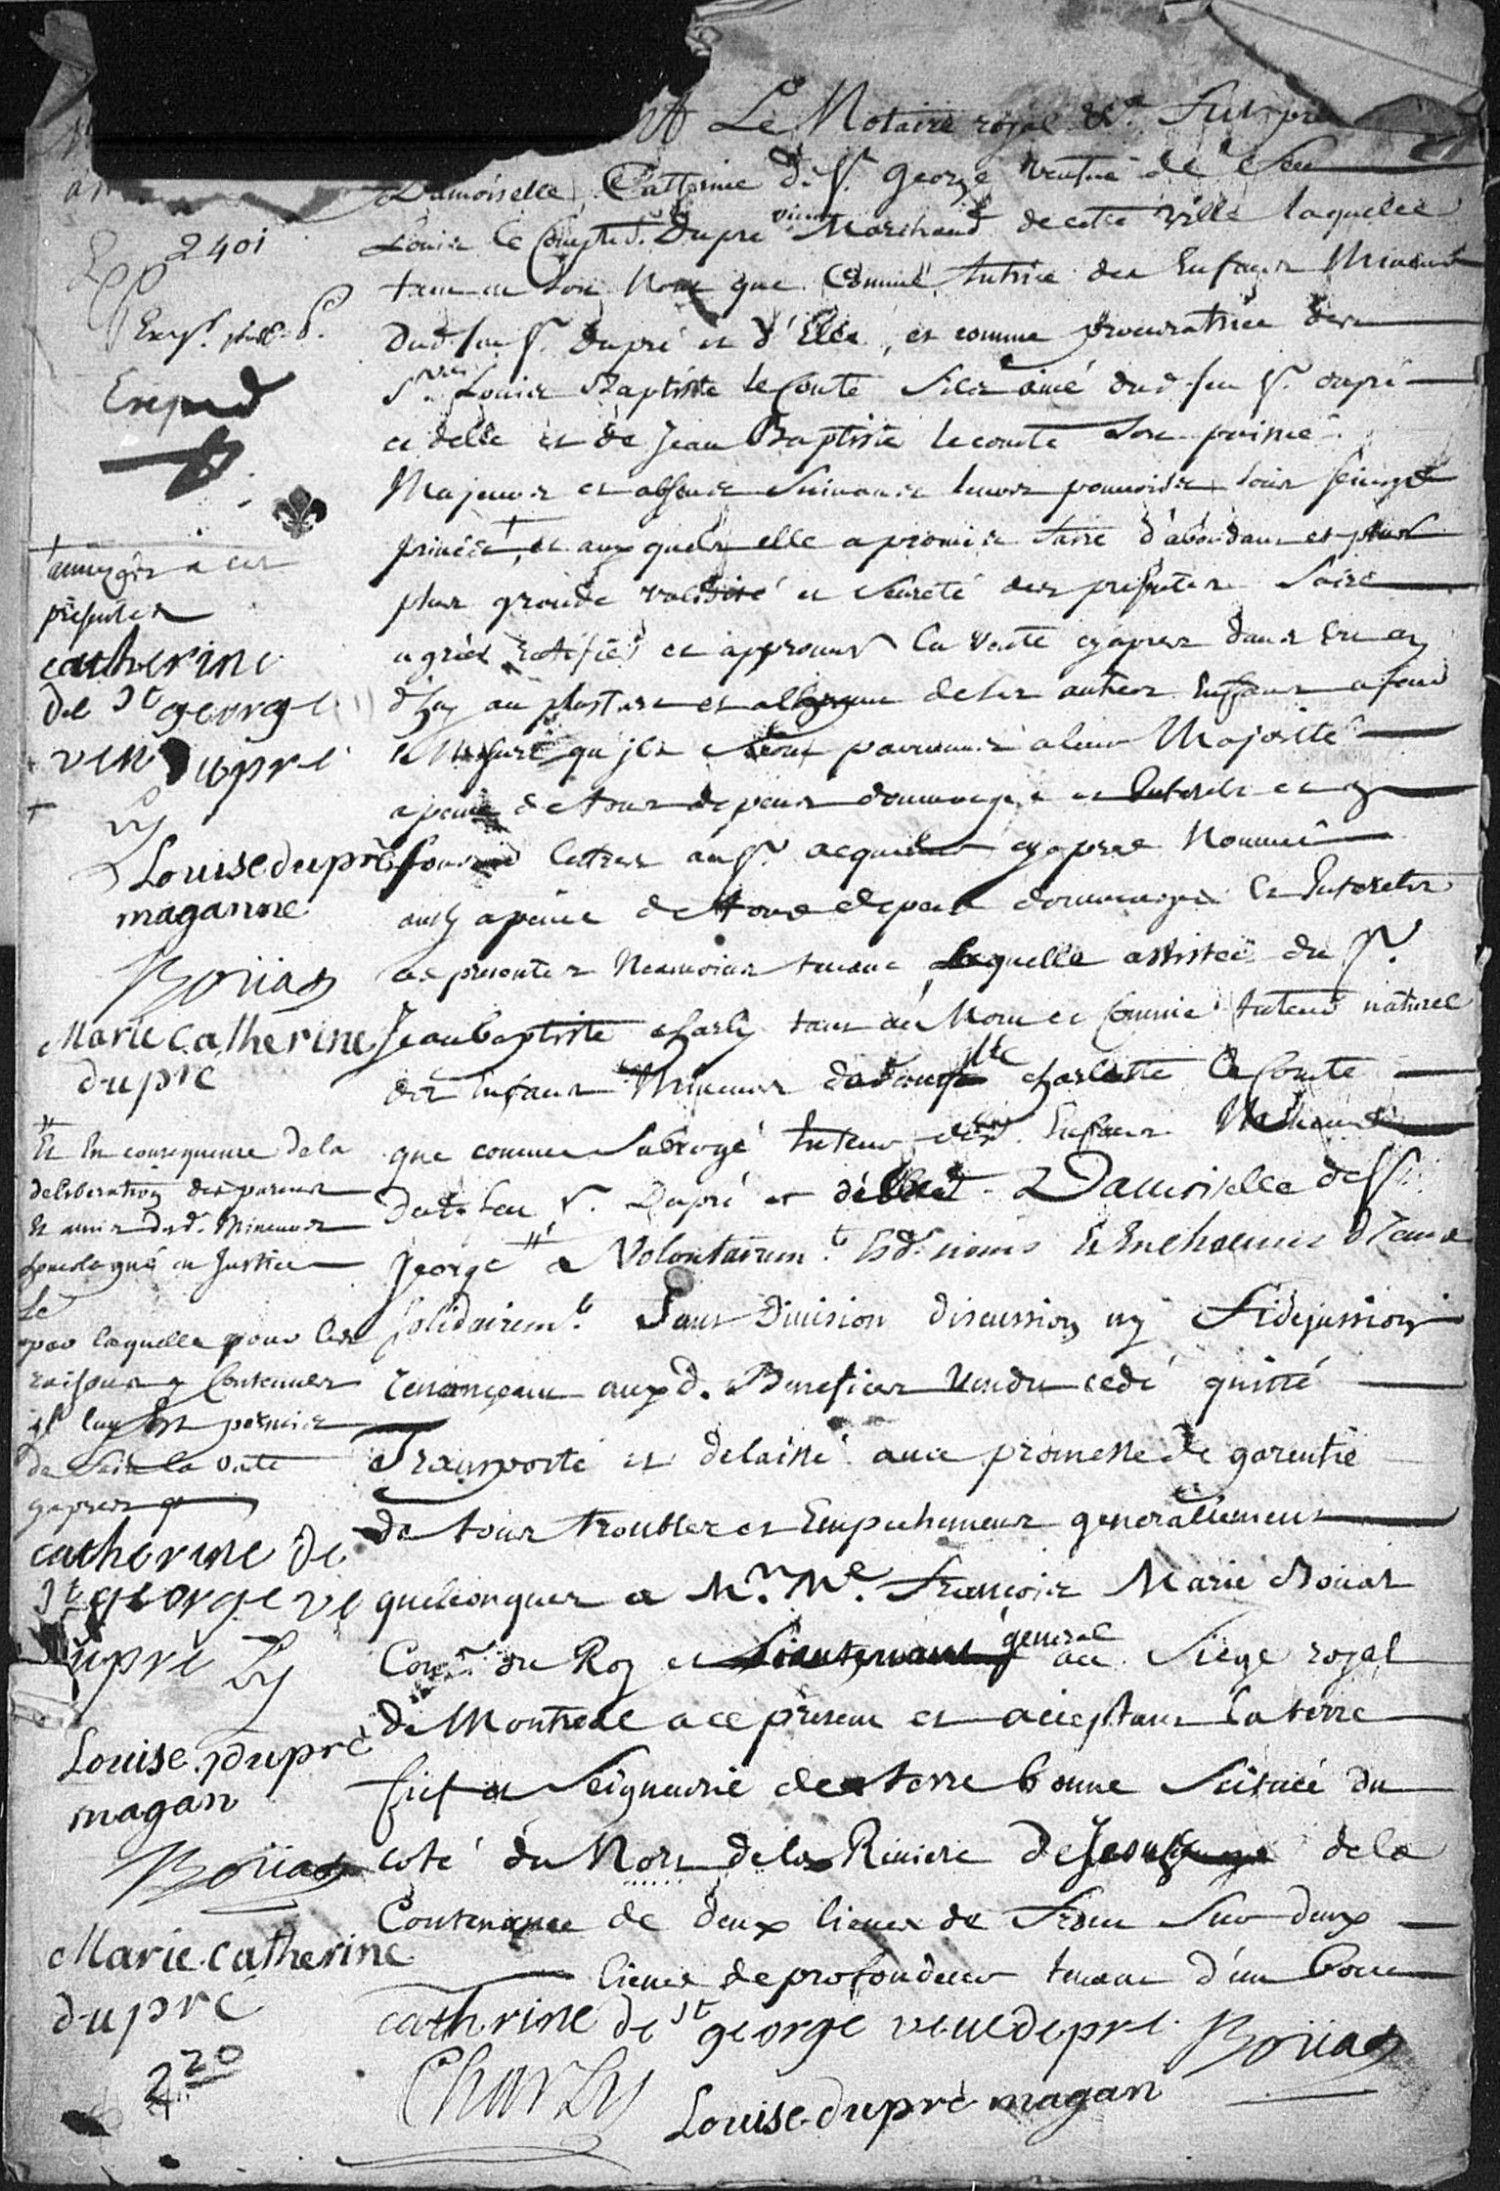 Le Notaire royal &a. Fut pre
Damoiselle Catherine de St. george veufue de feu
Louis le Compte Sr. Dupré vivant Marchand de cette ville laquelle
tant en son Nom que Comme tutrice des Enfans Mineurs
dud. feu Sr. dupré et d'Elle, et comme procuratrice des
Srs. Louis Baptiste le Conte filz ainé dud. feu Sr. dupré
et delle et de Jean Baptiste lecomte son puisné
Majeurs et absens suivant leurs pouvoirs sous seings
privés, et auxquels elle a promis faire d'abondant et pour
plus grande validité et seureté des presentes faire
agréer ratifier et approuver la vente cy apres dans un an
d'huy au plus tard et de ses autres Enfans a fur
et Mesure qu'ils seront parvenus a leur Majorité
a peine de tous depens dommages et Interests et en
fournir lettres au Sr. acquereur cy apres Nommé
aussy a peine de tous depens dommages et Interests
ces presentes Neamoins tenant, laquelle assistée du Sr.
Jean baptiste charly tant au Nom et Comme tuteur naturel
des Enfans Mineurs de charlotte le Comte
que comme Subrogé tuteur desd. Enfans Mineurs
dud. feu Sr. Dupré et de lad. Damoiselle de St.
george " a Volontairemt. esd. noms et En chacuns d'Iceux
solidairemt. Sans Division discussion ny Fidejussion
renonçant auxd. Benefices vendu cedé quitté
Transporté et delaissé avec promesse de garentie
de tous troubles et Empechemens generallement
quelconques a Mr. Me. François Marie Boüat
Coner. du Roy et Lieutenant general au Siege royal
de Montreal a ce present et acceptant la terre
fief et Seigneurie de terrebonne Scituée du
coté du Nort de la Riviere de Jesus de la
Contenance de deux lieues de front Sur deux
lieues de profondeur tenant d'un bout
cathrine de st george veuedepre Boüat
Charly Louise dupré magan
2401
Exped
annexés a ces
presentes
catherine
de st george
veu dupré
Louise dupré
maganne
Boüat
Marie catherine
dupré
" Et En consequence de la
deliberation des parens
et amis desd. Mineurs
homologué en Justice
Le
par laquelle pour les
raisons y Contenues
il luy Est permis
de faire la vente
cy apres
catherine de
st george ve
dupré
Louise dupré
magan
Boüat
Marie catherine
dupré
220